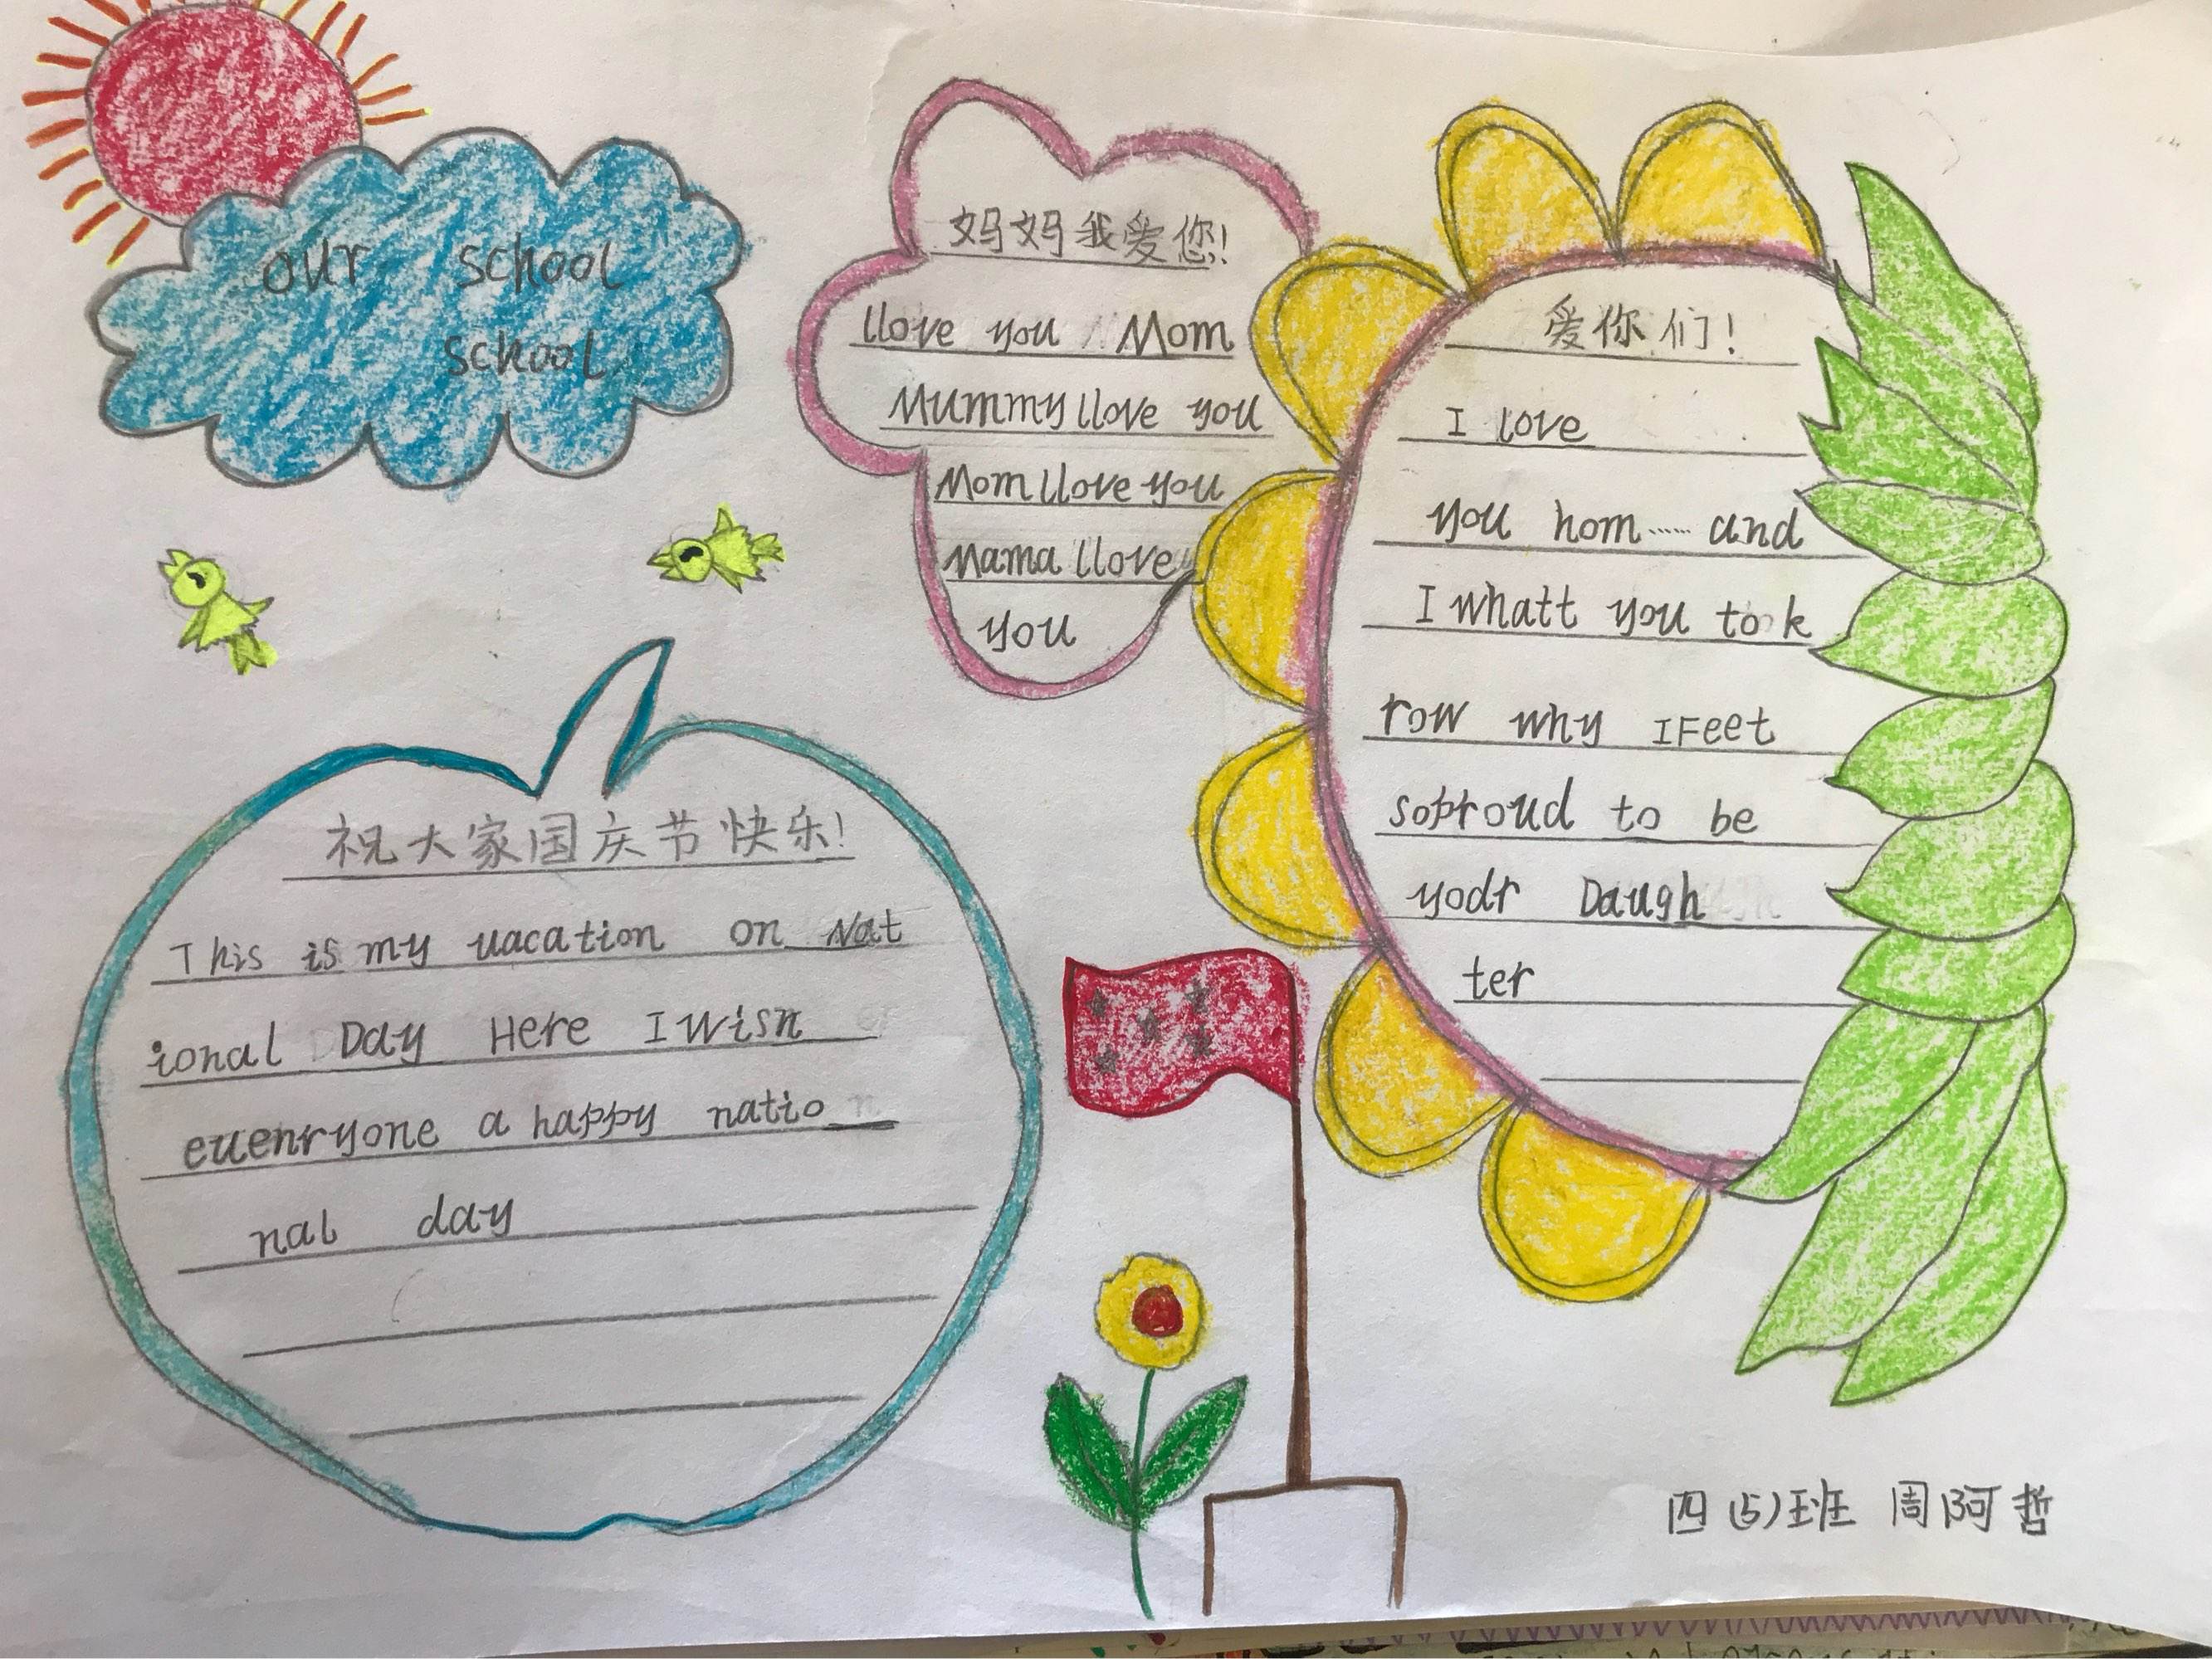 our school
school
妈妈我爱您!
llove you Mom
Mummy llove you
Mom llove you
Mama llove
you
爱你们!
I love
you hom...... and
I whatt you to k
row why IFeet
soproud to be
yodr Daugh
ter
祝大家国庆节快乐!
This is my uacation on Nat
ional Day Here I Wish
euenryone a happy natio
nal day
四(5)班 周阿哲